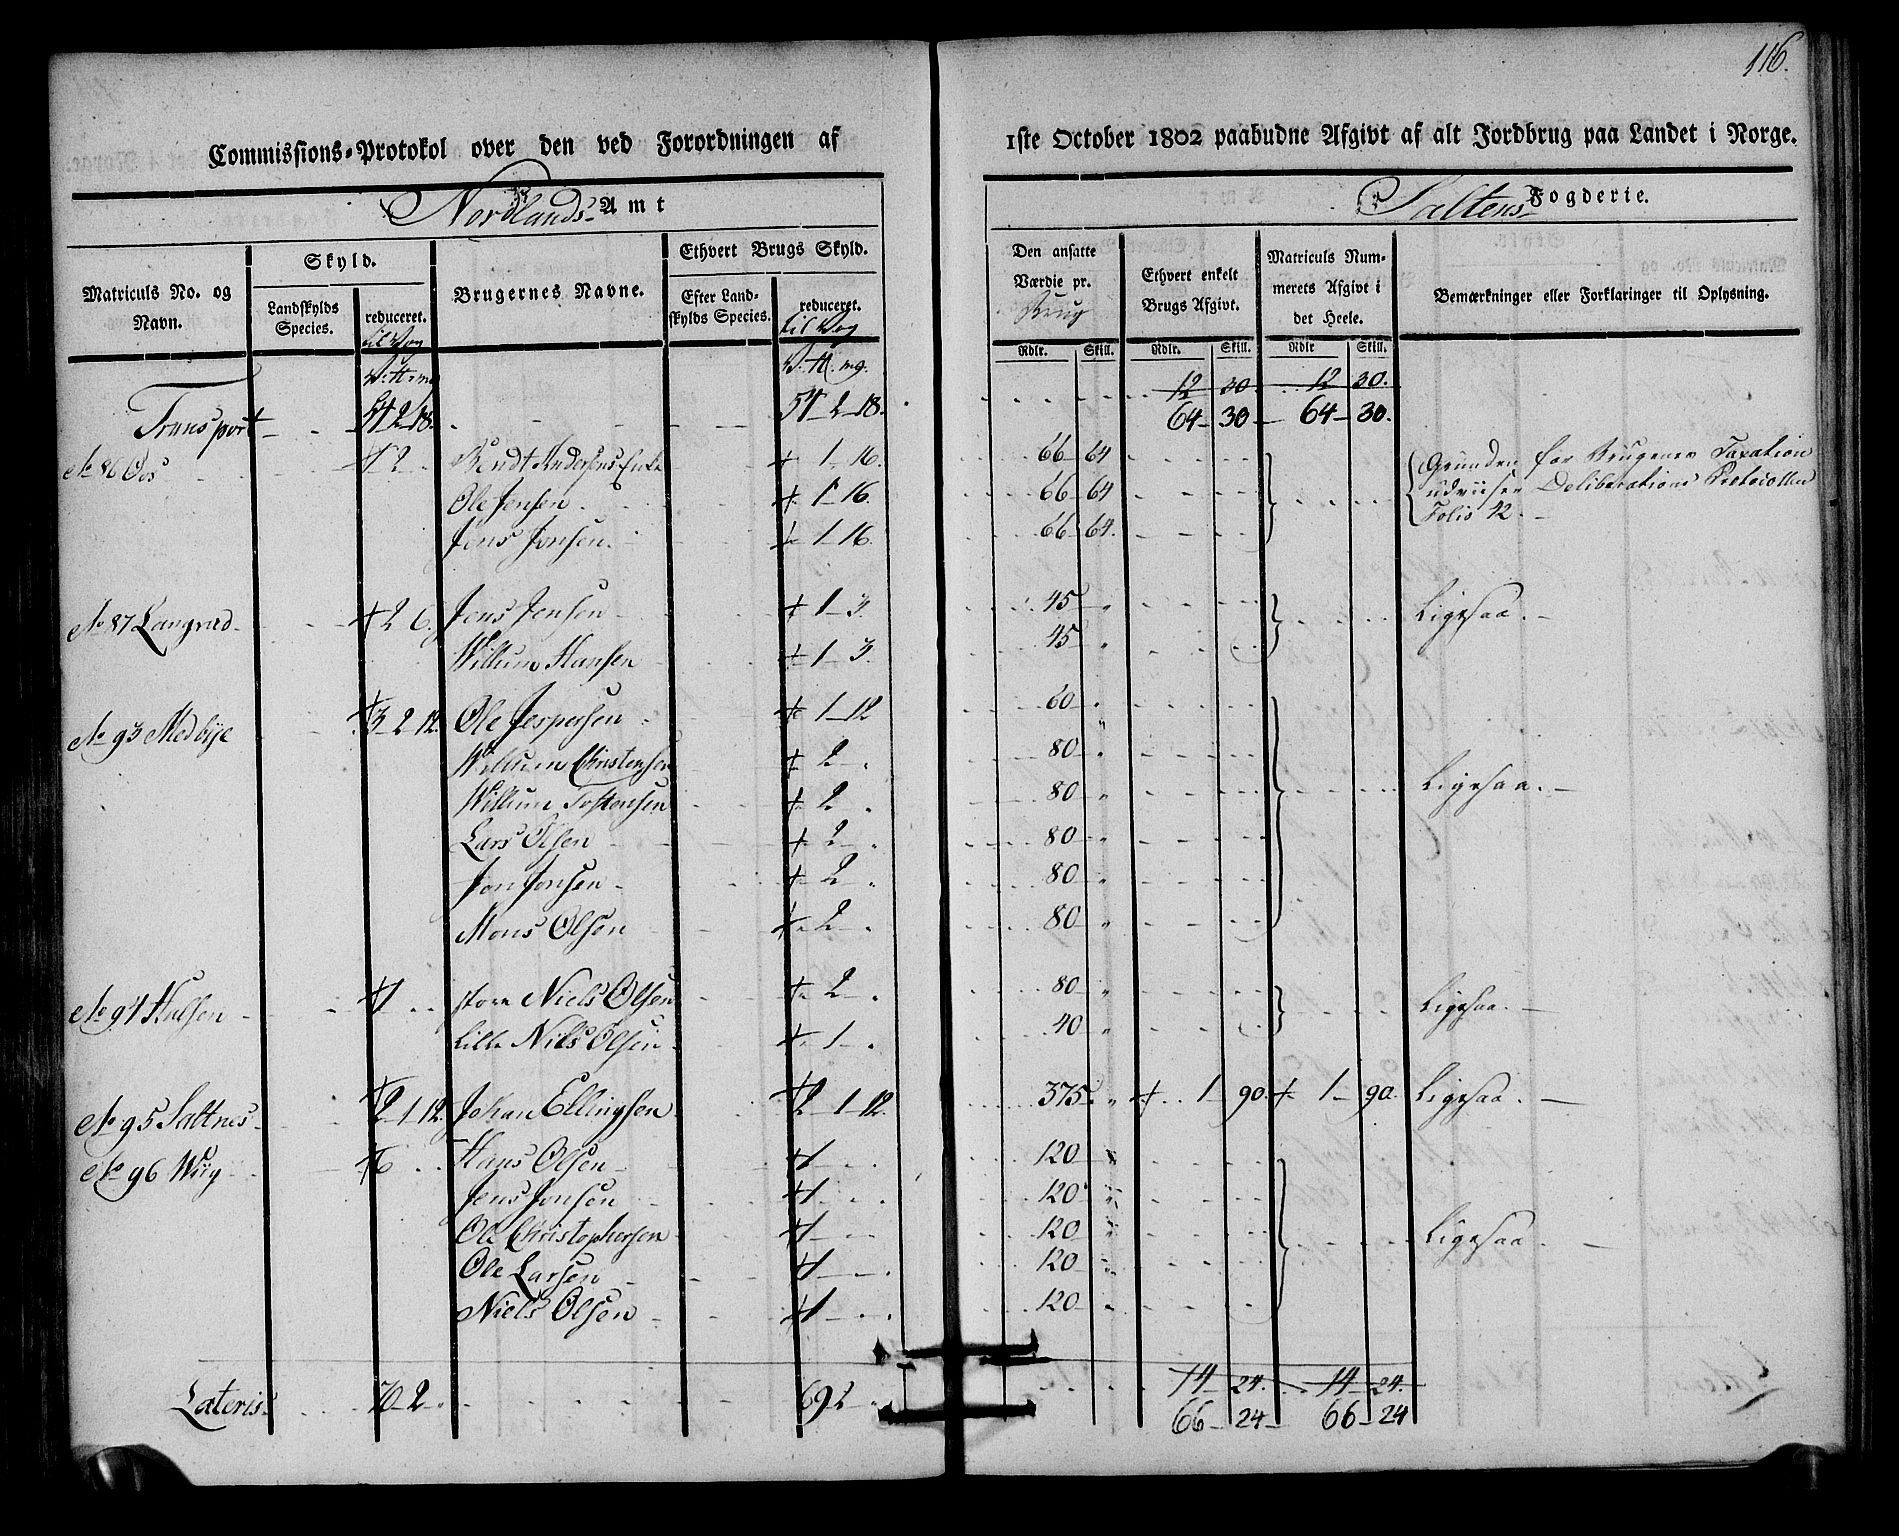 116.
Commissions-Protokol over den ved Forordningen af 1ste October 1802 paabudne Afgivt af alt Jordbrug paa Landet i Norge.
Nordlands Amt Saltens Fogderie.
Matriculs No. og Navn.
Skyld.
Landskylds Species.
reduceret. til Vog
Brugernes Navne.
Ethvert Brugs Skyld.
Efter Landskylds Species.
reduceret. til Vog
Den ansatte Værdie pr. Brug
Ethvert enkelt Brugs Afgivt.
Matriculs Nummerets Afgivt i det Heele.
Bemærkninger eller Forklaringer til Oplysning.
Rdlr. Skill. Rdlr. Skill. Rdlr Skill.
V. ℔. mg. V. ℔. mg.
12 30. 12 30.
Transport 54 2 18. 54 2 18. 64 30 64 30.
No 86 Oos 2 Bendt Andersens Enke 1 16. 66 64 Grunden for Brugenes Taxation
Ole Jensen 1 16. 66 64 udviiser Deliberations Protocollen
Jens Jonsen. 1 16. 66 64. Folio 12.
No 87 Langsæd 2 6. Jens Jensen 1 3. 45 " Ligesaa.
Willum Hansen 1 3. 45 "
No 93 Medbye 3 2 12. Ole Jespersen 1 12 60 "
Willum Christensen 2 80 "
Willum Tostensen 2 80 " Ligesaa.
Lars Olsen 2 80 "
Jon Jonsen 2 80 "
Mons Olsen 2 80 "
No 94 Halsen 1 store Niels Olsen 2 80 " Ligesaa.
lille Niels Olsen 1 40 "
No 95 Saltnes 2 1 12. Johan Ellingsen 2 1 12. 375 " 1 90. 1 90. Ligesaa.
No 96 Wiig 6 Hans Olsen 1 120 "
Jens Jonsen 1 120 "
Ole Christophersen 1 120 " Ligesaa.
Ole Larsen 1 120 "
Niels Olsen 1 120 "
14 24. 14 24.
Lateris 70 2 69 2 66 24 66 24